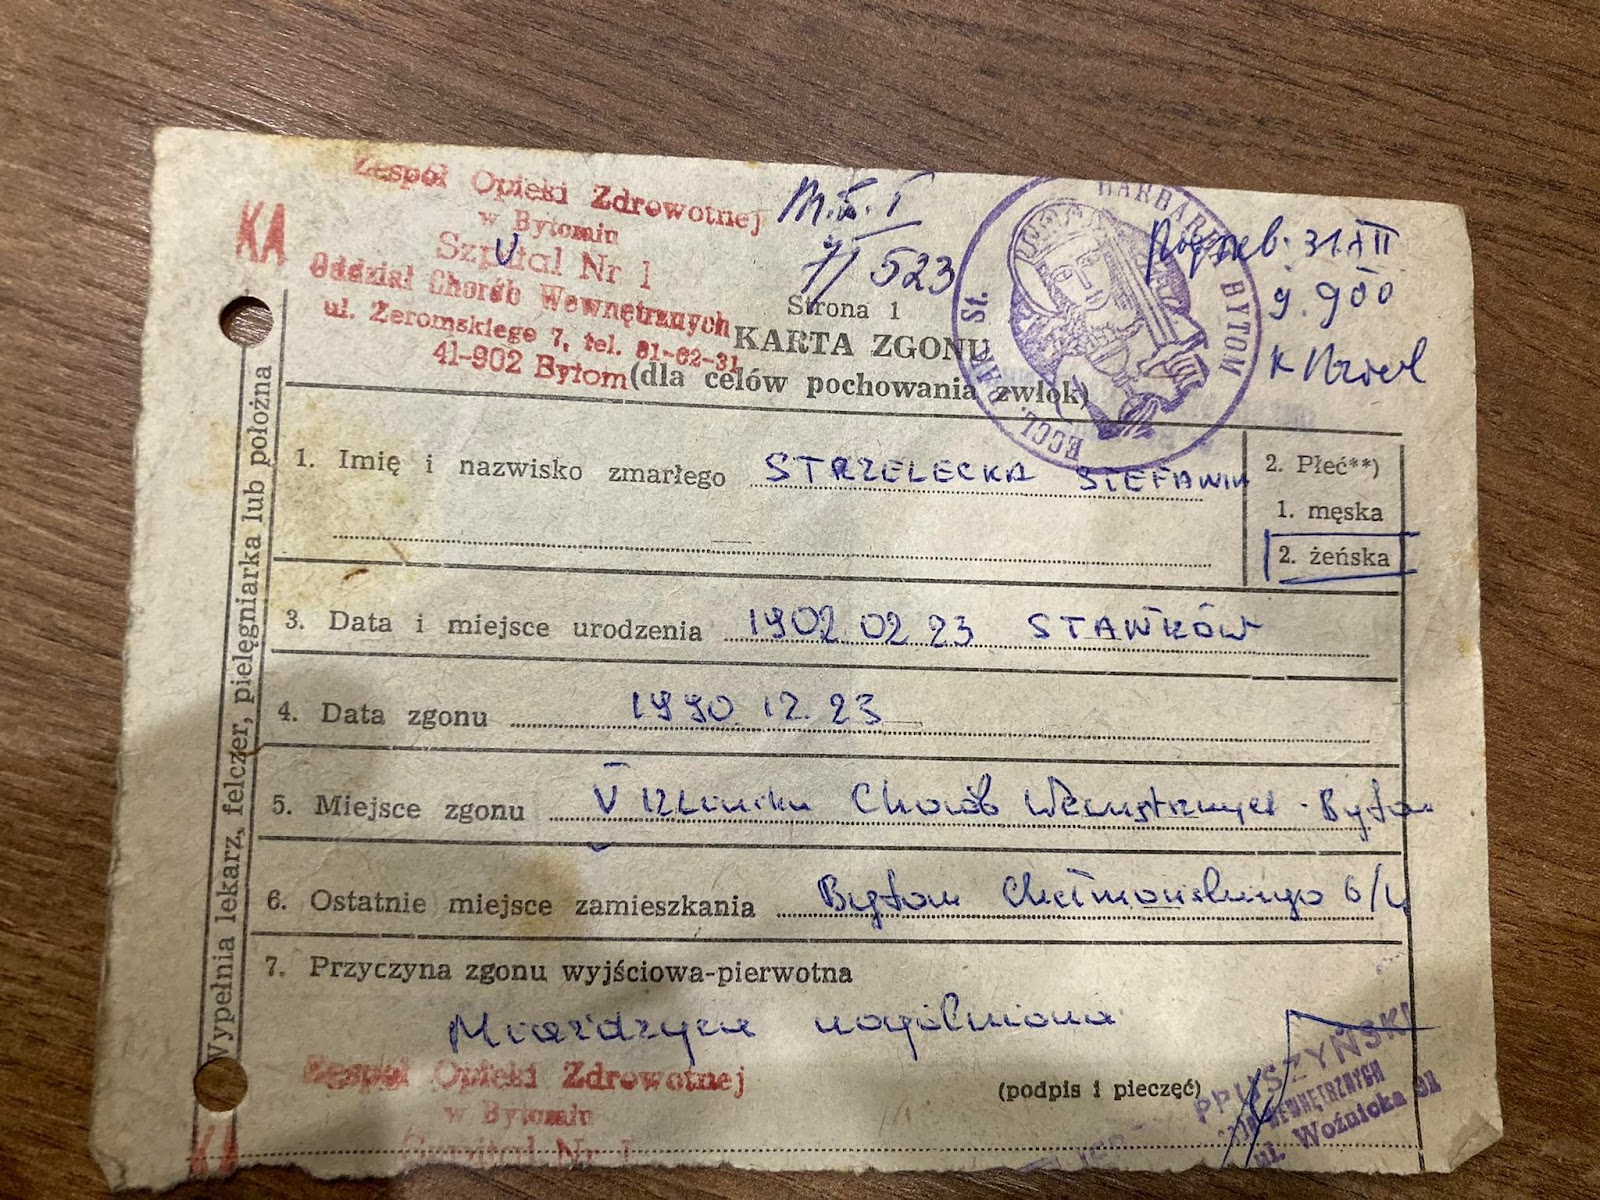 Zespół Opieki Zdrowotnej
w Bytomiu
Szpital Nr 1
Oddział Chorób Wewnętrznych
ul. Żeromskiego 7, tel. 81-62-31
41-902 Bytom
KA
523
St. BARBARAE BYTOM
ECCL. PAR.
31.XII
g. 9oo
Strona 1
KARTA ZGONU
(dla celów pochowania zwłok)
Wypełnia lekarz, felczer, pielęgniarka lub położna
1. Imię i nazwisko zmarłego STRZELECKA STEFANIA
2. Płeć**)
1. męska
2. żeńska
3. Data i miejsce urodzenia 1902 02 23
4. Data zgonu 1990.12.23
5. Miejsce zgonu V Chorób Wewnętrznych - Bytom
6. Ostatnie miejsce zamieszkania Bytom Chełmońskiego 6/4
7. Przyczyna zgonu wyjściowa-pierwotna
Miażdżyca uogólniona
Zespół Opieki Zdrowotnej
w Bytomiu
Szpital Nr 1
(podpis i pieczęć)
PUSZYŃSKI
WEWNĘTRZNYCH
ul. Woźnicka